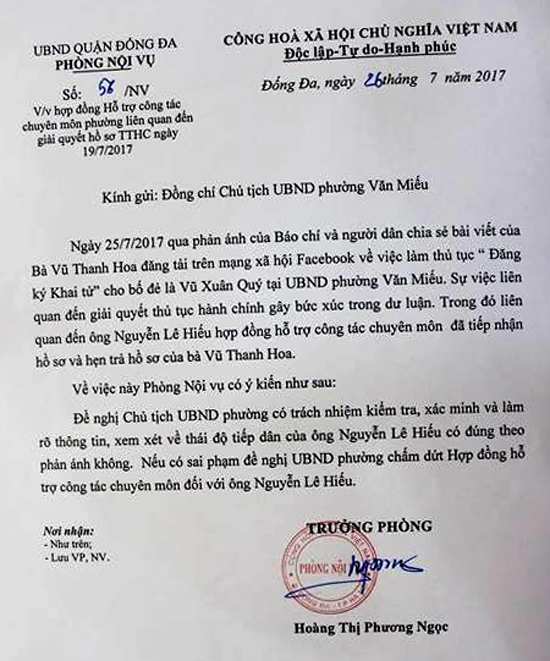 UBND QUẬN ĐỐNG ĐA
PHÒNG NỘI VỤ
Số: 58 /NV
V/v hợp đồng Hỗ trợ công tác
chuyên môn phường liên quan đến
giải quyết hồ sơ TTHC ngày
19/7/2017
CÔNG HOÀ XÃ HỘI CHỦ NGHĨA VIỆT NAM
Độc lập-Tự do-Hạnh phúc
Đống Đa, ngày 26tháng 7 năm 2017
Kính gửi: Đồng chí Chủ tịch UBND phường Văn Miếu
Ngày 25/7/2017 qua phản ánh của Báo chí và người dân chia sẻ bài viết của
Bà Vũ Thanh Hoa đăng tải trên mạng xã hội Facebook về việc làm thủ tục “ Đăng
ký Khai tử” cho bố đẻ là Vũ Xuân Quý tại UBND phường Văn Miếu. Sự việc liên
quan đến giải quyết thủ tục hành chính gây bức xúc trong dư luận. Trong đó liên
quan đến ông Nguyễn Lê Hiếu hợp đồng hỗ trợ công tác chuyên môn đã tiếp nhận
hồ sơ và hẹn trả hồ sơ của bà Vũ Thanh Hoa.
Về việc này Phòng Nội vụ có ý kiến như sau:
Đề nghị Chủ tịch UBND phường có trách nhiệm kiểm tra, xác minh và làm
rõ thông tin, xem xét về thái độ tiếp dân của ông Nguyễn Lê Hiếu có đúng theo
phản ánh không. Nếu có sai phạm đề nghị UBND phường chấm dứt Hợp đồng hỗ
trợ công tác chuyên môn đối với ông Nguyễn Lê Hiếu.
Nơi nhận:
- Như trên;
- Lưu VP, NV.
TRƯỞNG PHÒNG
PHÒNG NỘI
Hoàng Thị Phương Ngọc